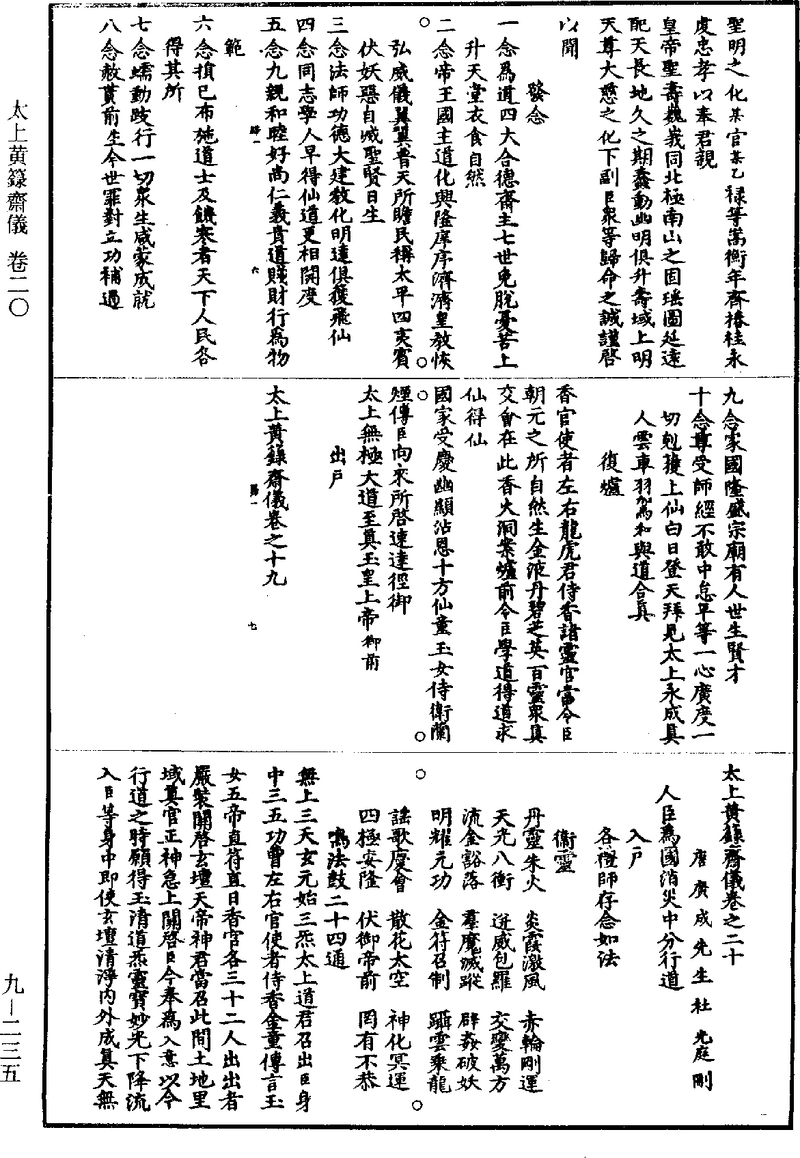 聖明之化某官某乙祿等嵩衡年齊椿桂永
虔忠孝以奉君親
皇帝聖壽巍峩同北極南山之固瑤圖延遠
配天長地久之期蠢動幽明俱升壽域上明
天尊大慈之化下副臣衆等歸命之誠謹啓
以聞
發念
一念爲道四大合德齋主七世免脫憂苦上
升天堂衣食自然
二念帝王國主道化興隆庠序濟濟皇教恢
弘威儀翼翼普天所瞻民稱太平四夷賓
伏妖惡自滅聖賢日生
三念法師功德大建教化明達俱獲飛仙
四念同志學人早得仙道更相開度
五念九親和睦好尚仁義貴道賤財行爲物
範
六念損已布施道士及饑寒者天下人民各
得其所
七念蠕動跂行一切衆生咸蒙成就
八念赦貰前生今世罪對立功補過
九念家國隆盛宗廟有人世生賢才
十念尊受師經不敢中怠平等一心廣度一
切剋獲上仙白日登天拜見太上永成真
人雲車羽駕和與道合真
復爐
香官使者左右龍虎君侍香諸靈官當令臣
朝元之所自然生金液丹碧芝英百靈衆真
交會在此香火洞案爐前令臣學道得道求
仙得仙
國家受慶幽顯沾恩十方仙童玉女侍衛蘭
煙傳臣向來所啓速達徑御
太上無極大道至真玉皇上帝御前
出戶
太上黃籙齋儀卷之十九
太上黃籙齋儀卷之二十
唐廣成先生杜光庭刪
人臣爲國消災中分行道
入戶
各禮師存念如法
衛靈
丹靈朱火 炎霞激風 赤輪剛運
天光八衝 迸威包羅 交變萬方
流金豁落 羣魔滅蹤 辟姦破妖
明耀元功 金符召制 躡雲乘龍
謠歌慶會 散花太空 神化冥運
四極安隆 伏御帝前 罔有不恭
鳴法鼓二十四通
無上三天玄元始三炁太上道君召出臣身
中三五功曹左右官使者侍香金童傳言玉
女五帝直符直日香官各三十二人出出者
嚴裝關啓玄壇天帝神君當召此間土地里
域真官正神急上關啓臣今奉爲入意以今
行道之時願得玉清道炁靈寶妙光下降流
入臣等身中即使玄壇清淨內外成真天無
太上黃籙齋儀 卷二〇
九—二三五